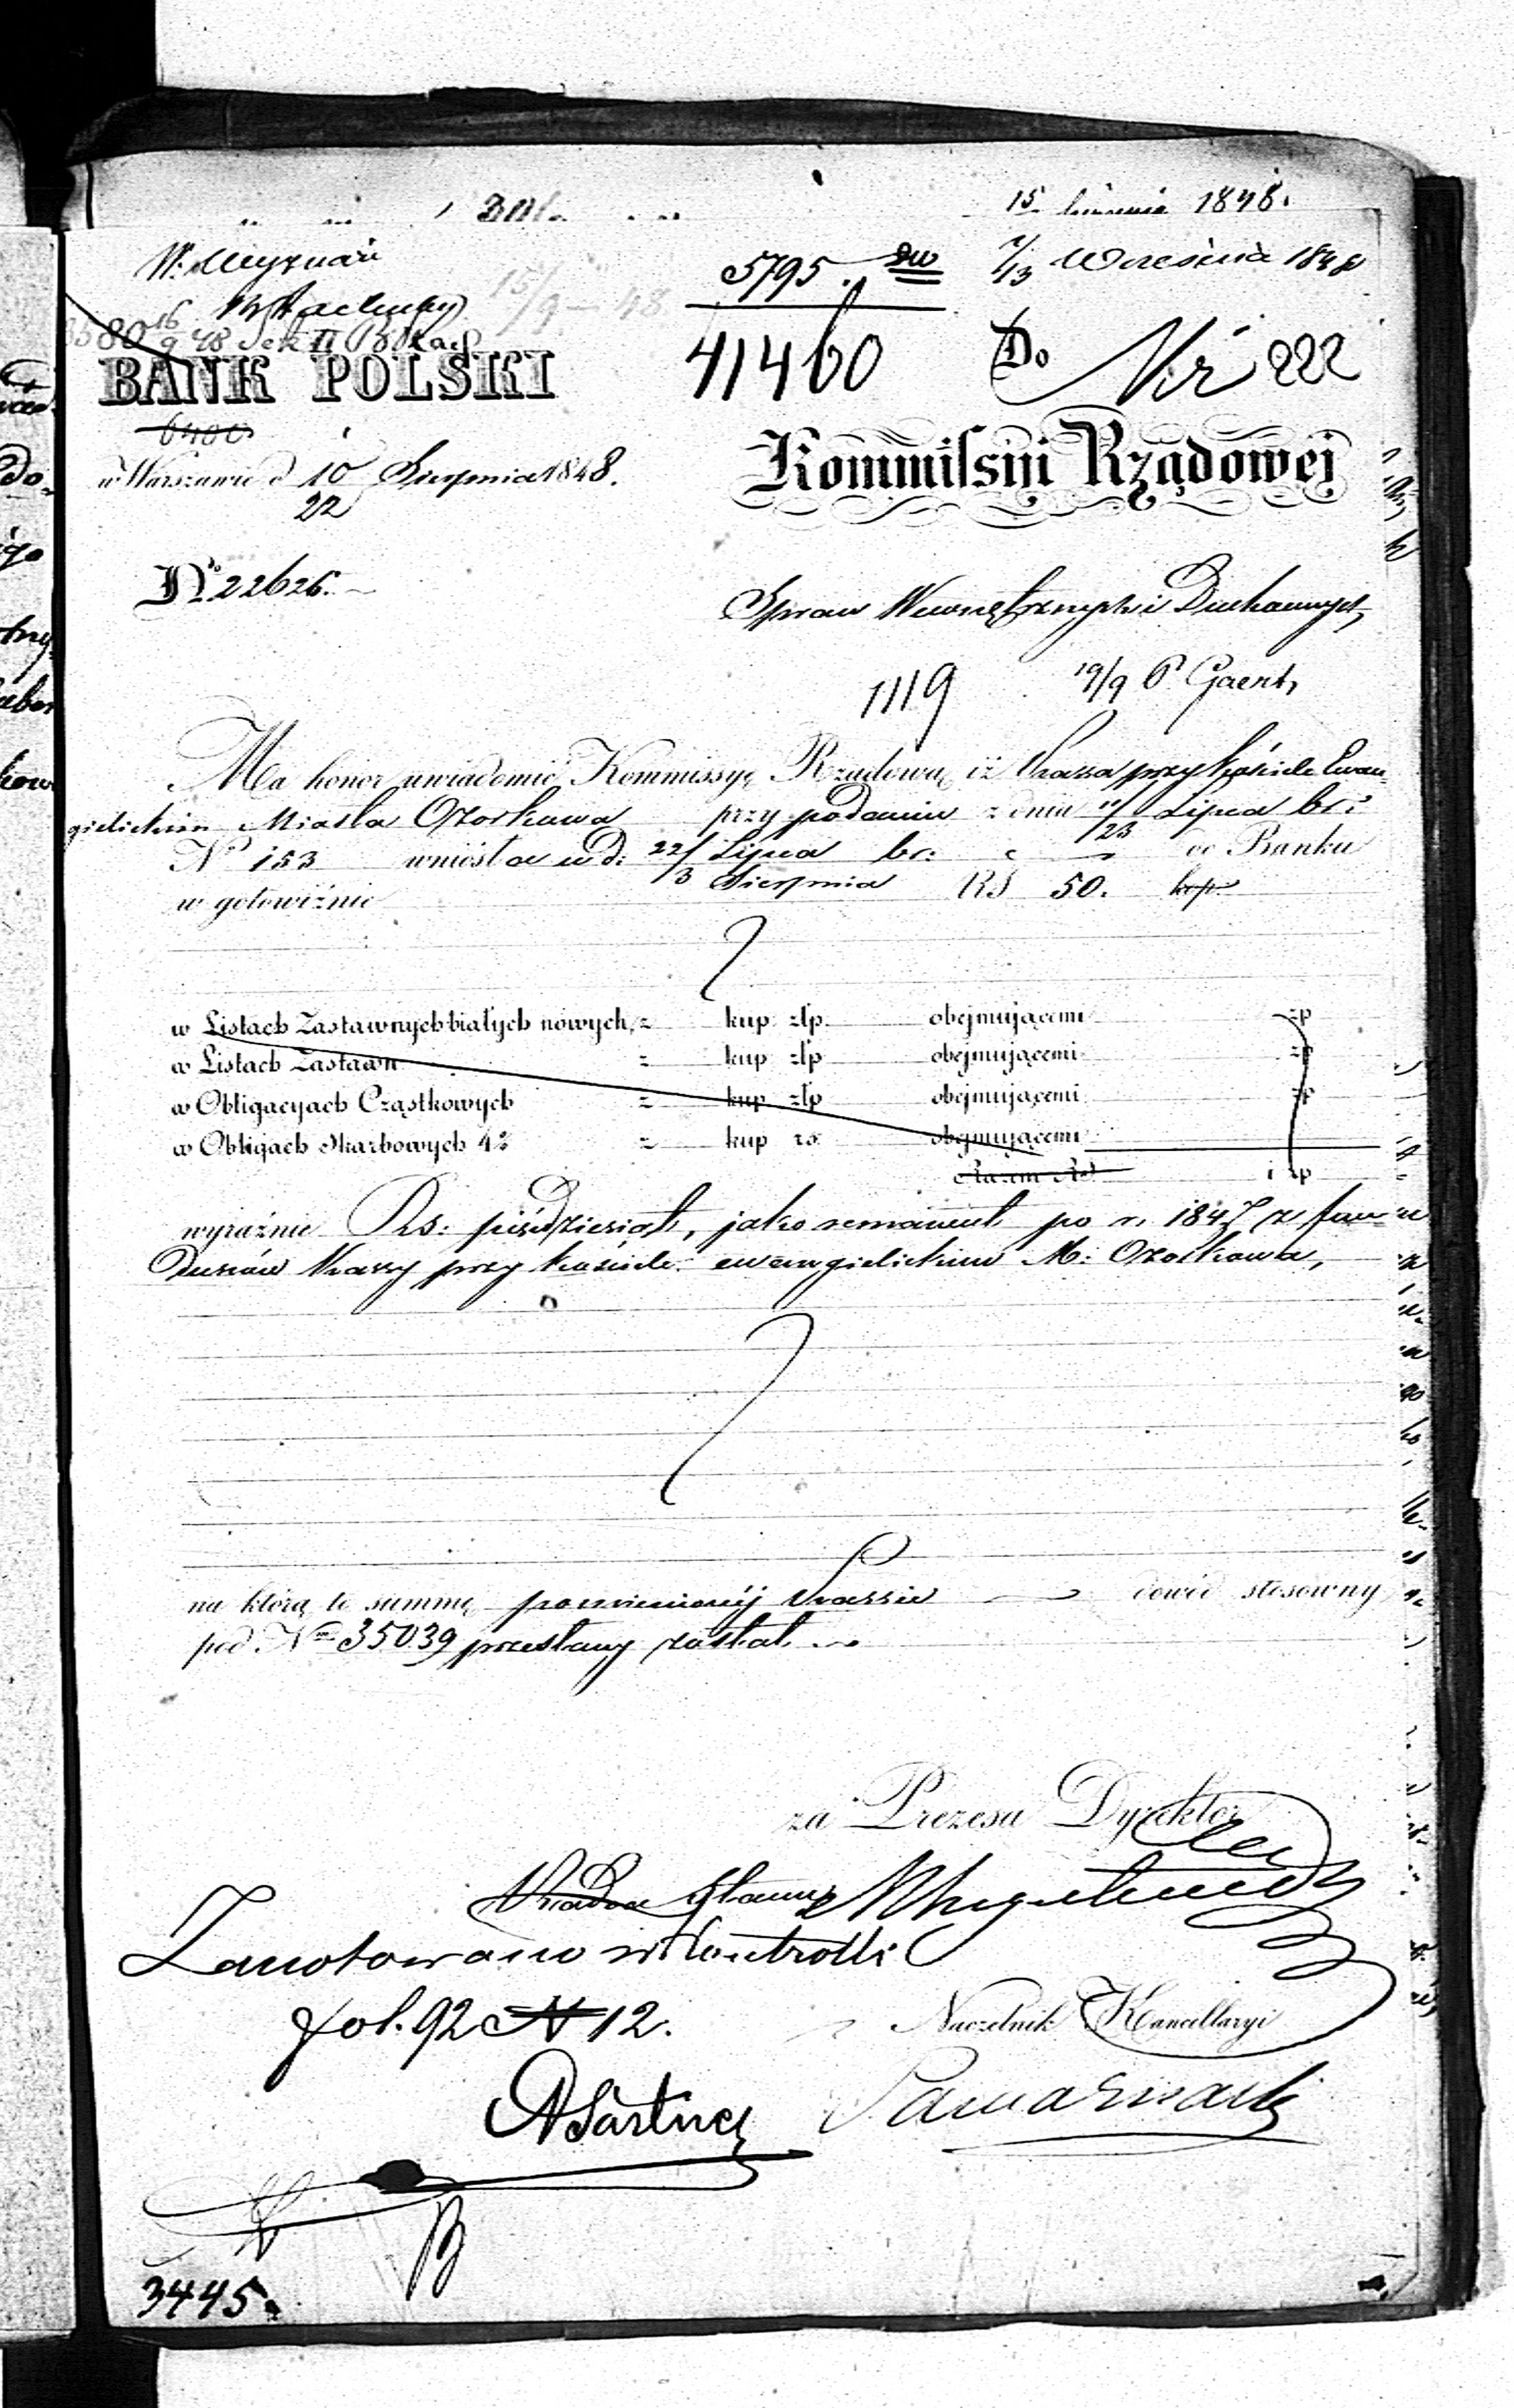 15 1848.
5795.
1/13 Września 1848
16/9 48 Sek II
15/9 – 48
41460
Do
Nr 222
BANK POLSKI
6400
w Warszawie d 10/22 Sierpnia 1848.
Kommissyi Rządowej
No. 22626.
Spraw Wewnętrznych i Duchownych
1119
19/9 P.
Ma honor uwiadomić Kommissyę Rządową iż Kassa przy kościele Ewan-
gielickim Miasta Ozorkowa przy podaniu z dnia 11/23 Lipca br:
No 153 wniosła w d: 22/3 Lipca/Sierpnia br: do Banku
w gotowiźnie RS 50. kop.
w Listach Zastawnych białych nowych z kup: złp. obejmującemi zp
w Listach Zastawn z kup złp obejmującemi zp
w Obligacyach Cząstkowych z kup złp obejmującemi zp
w Obligach Skarbowych 4% z kup rs: obejmującemi
Razem RS i zp
wyraźnie Rs: pięćdziesiąt, jako remanent po r. 1847 z fun-
duszów Kassy przy kościele ewangielickim M: Ozorkowa,
na którą to summę pomienionéj Kassie dowód stosowny
pod No 35039 przesłany został
za Prezesa Dyrektor
Radca Stanu
Zanotowano w Kontrolli
fol. 92 N 12.
Naczelnik Kancellaryi
3445.